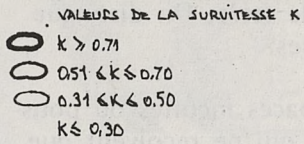 VALEURS DE LA SURVITESSE K
K ⩾ 0.71
0.51 ⩽ K ⩽ 0.70
0.31 ⩽ K ⩽ 0.50
K ⩽ 0,30